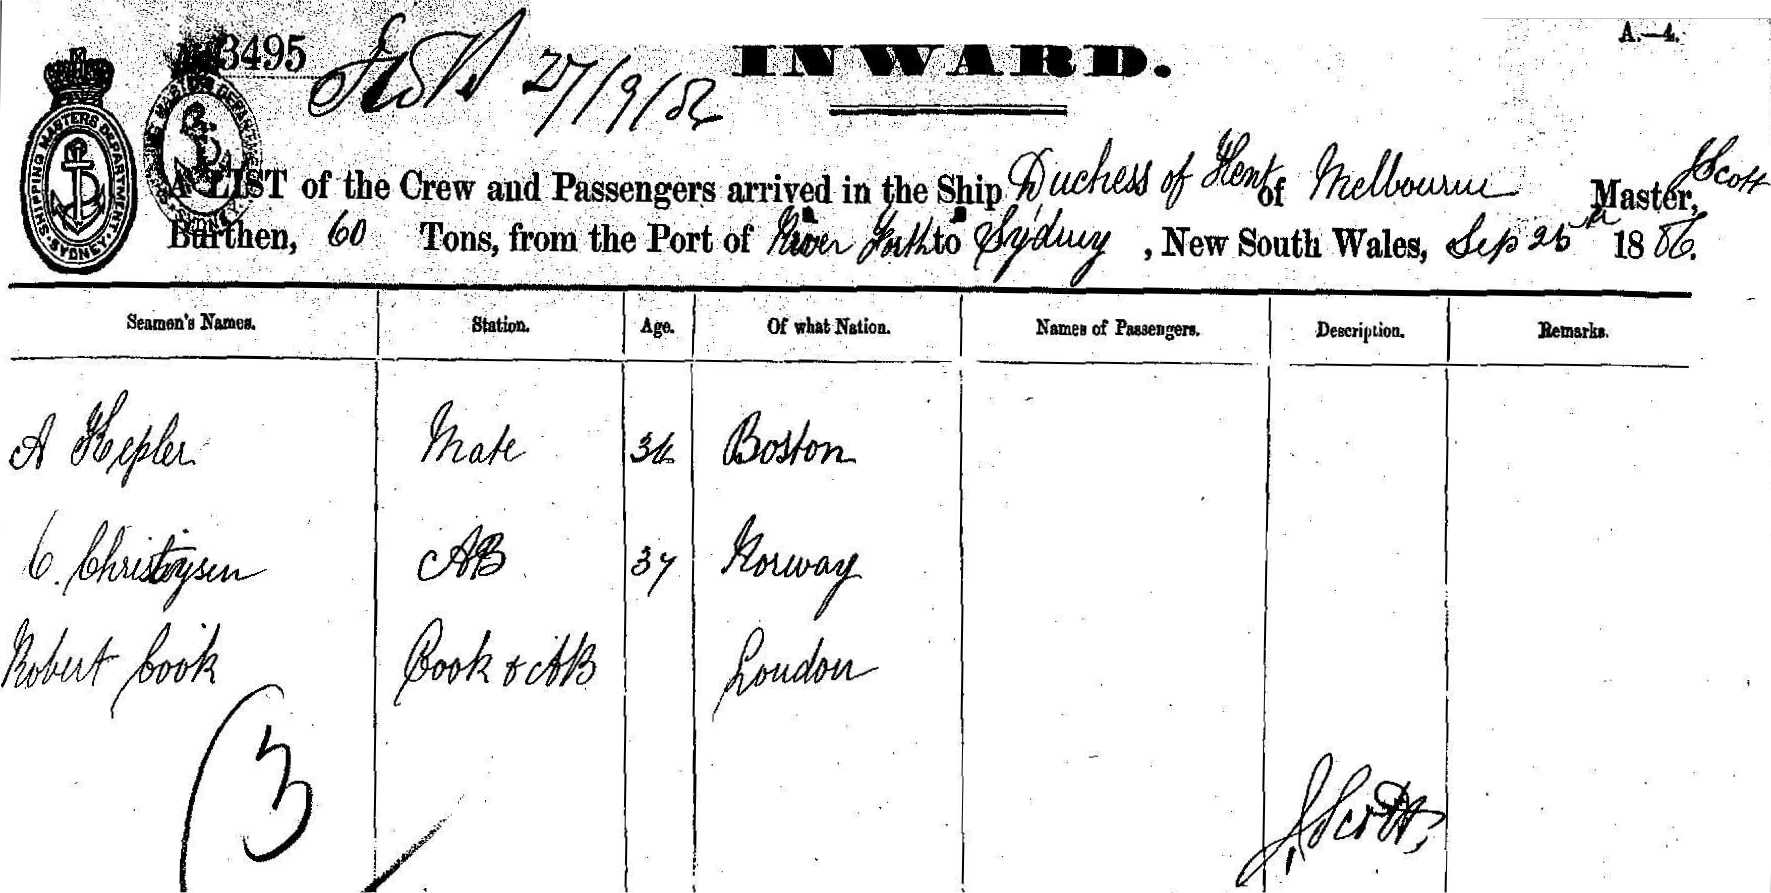 3495
27/9/86
INWARD.
A.—4.
SHIPPING MASTERS DEPARTMENT. SYDNEY
A LIST of the Crew and Passengers arrived in the Ship Duchess of Kent of Melbourne Master, J Scott
Burthen, 60 Tons, from the Port of River Forth to Sydney, New South Wales, Sep 25th 1886.
Seamen's Names. Station. Age. Of what Nation. Names of Passengers. Description. Remarks.
A Kepler Mate 36 Boston
C. Christysen AB 37 Norway
Robert Cook Cook & AB London
3
J Scott